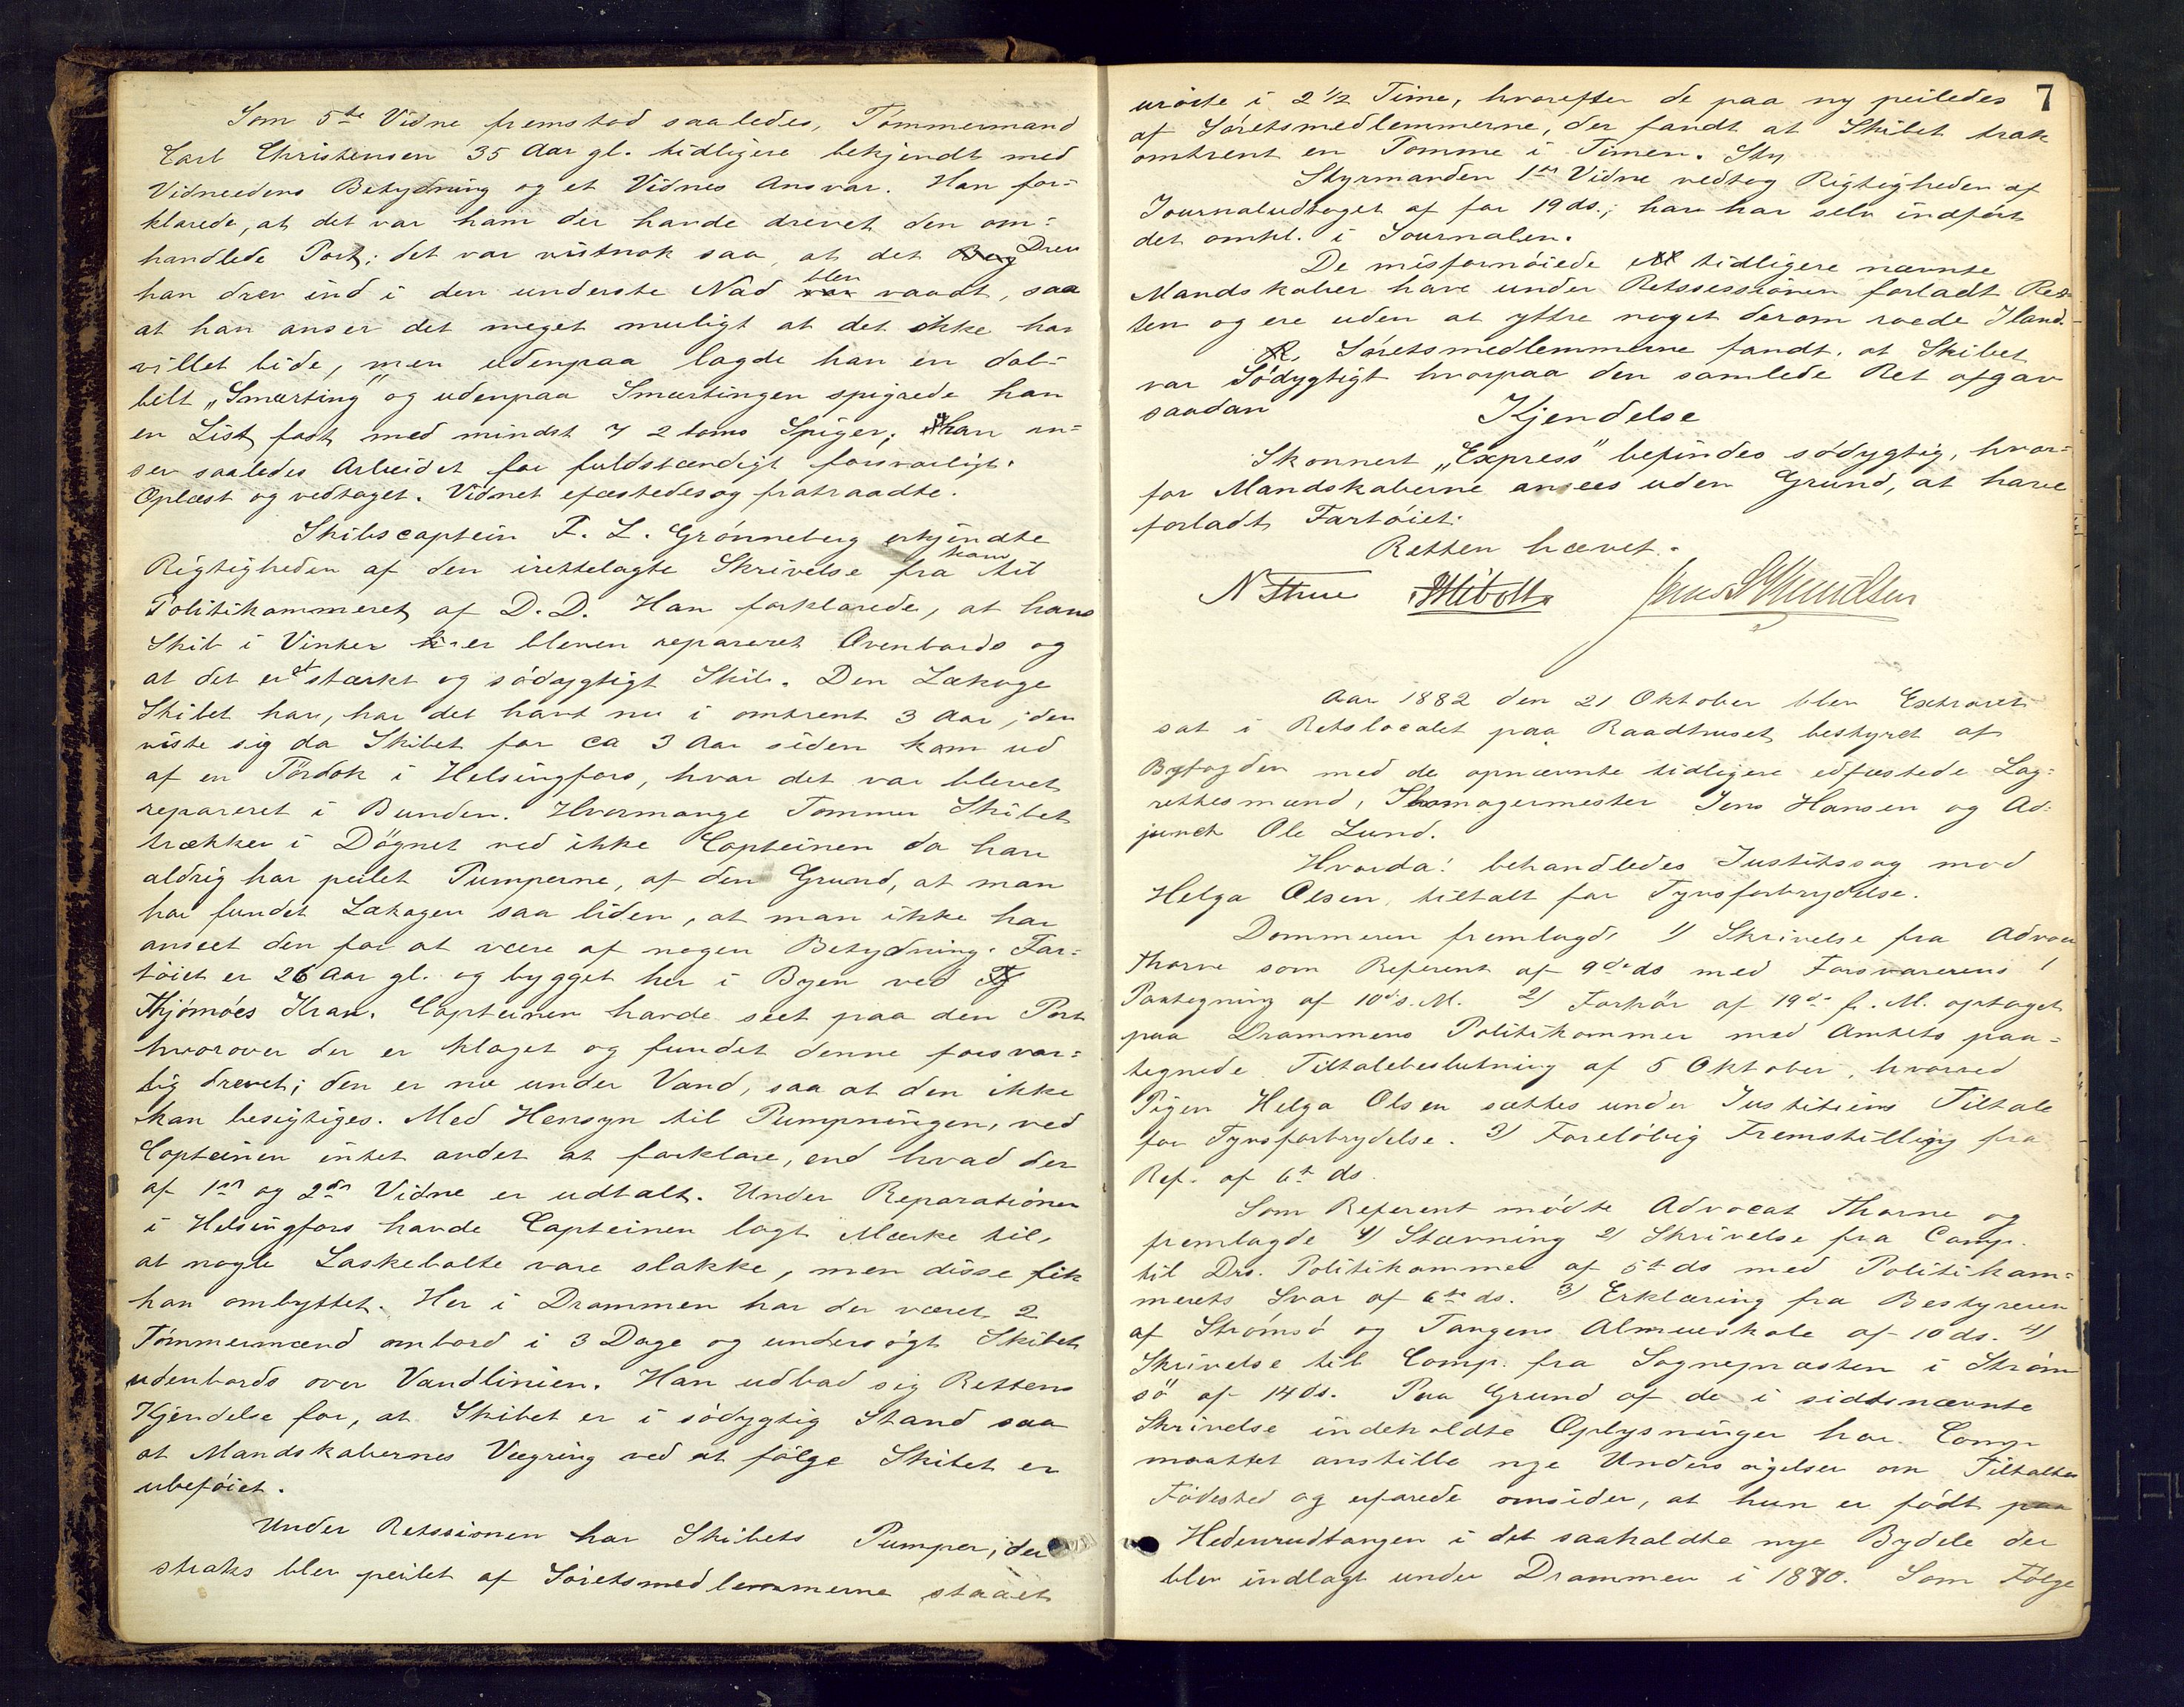 Som 5te Vidne fremstod saaledes, Tømmermand
Carl Christensen 35 Aar gl. tidligere bekjendt med
Vidneedens Betydning og et Vidnes Ansvar. Han for-
klarede, at det var ham der havde drevet den om-
handlede Port; det var vistnok saa, at det Drev
han drev ind i den underste Nad blev vaadt, saa
at han anser det meget muligt at det ikke har
villet bide, men udenpaa lagde han en dob-
belt „Smærting" og udenpaa Smærtingen spigrede han
en List fast med mindst 7 2 toms Spiger; han an-
ser saaledes Arbeidet for fuldstændigt forsvarligt.
Oplæst og vedtaget. Vidnet efæstedes og fratraadte.
Skibscaptein P. L. Grønneberg erkjendte
Rigtigheden af den irettelagte Skrivelse fra ham til
Politikammeret af D.D. Han forklarede, at hans
Skib i Vinter er bleven repareret Ovenbords og
at det er et stærkt og södygtigt Skib. Den Lækage
Skibet har, har det havt nu i omtrent 3 Aar; den
viste sig da Skibet for ca 3 Aar siden kom ud
af en Tördok i Helsingfors, hvor det var blevet
repareret i Bunden. Hvormange Tommer Skibet
trækker i Dögnet ved ikke Capteinen da han
aldrig har peilet Pumperne, af den Grund, at man
har fundet Lækagen saa liden, at man ikke har
anseet den for at være af nogen Betydning. Far-
töiet er 26 Aar gl. og bygget her i Byen ved
Thjömöes Kran. Capteinen havde seet paa den Port
hvorover der er klaget og fundet denne forsvar-
lig drevet; den er nu under Vand, saa at den ikke
kan besigtiges. Med Hensyn til Pumpningen, ved
Capteinen intet andet at forklare, end hvad der
af 1ste og 2det Vidne er udtalt. Under Reparationen
i Helsingfors havde Capteinen lagt Mærke til,
at nogle Laskebolte vare slakke, men disse fik
han ombyttet. Her i Drammen har der været 2
Tömmermænd ombord i 3 Dage og undersögt Skibet
udenbords over Vandlinien. Han udbad sig Rettens
Kjendelse for, at Skibet er i södygtig Stand saa
at Mandskabernes Vægring ved at fölge Skibet er
ubeföiet.
Under Retssionen har Skibets Pumper, der
straks blev peilet af Söretsmedlemmerne staaet
7
urörte i 2 1/2 Time, hvorefter de paa ny peiledes
af Söretsmedlemmerne, der fandt at Skibet trak
omtrent en Tomme i Timen. Sty
Styrmanden 1ste Vidne vedtog Rigtigheden af
Journaludtoget af for 19 ds.; han har selv indfört
det omhl. i Journalen.
De misfornöiede tidligere nævnte
Mandskaber have under Retssessionen forladt Ret-
ten og ere uden at yttre noget derom roede Iland.
Söretsmedlemmerne fandt, at Skibet
var Södygtigt hvorpaa den samlede Ret afgav
saadan
Kjendelse
Skonnert „Express" befindes södygtig, hvor-
for Mandskaberne ansees uden Grund, at have
forladt Fartöiet.
Retten hævet.
Aar 1882 den 21 Oktober blev Extraret
sat i Retslocalet paa Raadhuset bestyret af
Byfogden med de opnævnte tidligere edfæstede Lag-
rettesmænd, Skomagermester Jens Hansen og Ad-
junct Ole Lund.
Hvorda! behandledes Justitssag mod
Helga Olsen, tiltalt for Tyvsforbrydelse.
Dommeren fremlagde 1) Skrivelse fra Advoc
Thorne som Referent af 9de ds med Forsvarerens
Paategning af 10 s. M. 2) Forhör af 19de f. M. optaget
paa Drammens Politikammer med Amtets paa-
tegnede Tiltalebeslutning af 5 Oktober, hvorved
Pigen Helga Olsen sættes under Justitiens Tiltale
for Tyvsforbrydelse. 3) Forelöbig Fremstilling fra
Ref. af 6te ds.
Som Referent mödte Advocat Thorne og
fremlagde 1) Stævning 2) Skrivelse fra Comp.
til Drs. Politikammer af 5te ds med Politikam-
merets Svar af 6te ds. 3) Erklæring fra Bestyreren
af Strömsö og Tangens Almueskole af 10 ds. 4)
Skrivelse til Comp. fra Sognepræsten i Ström
sö af 14 ds. Paa Grund af de i sidstnævnte
Skrivelse indeholdte Oplysninger har Comp
maattet anstille nye Undersögelser om Tiltaltes
Födested og erfarede omsider, at hun er födt paa
Hedenrudtangen i det saakaldte nye Bydele der
blev indlagt under Drammen i 1870. Som Fölge